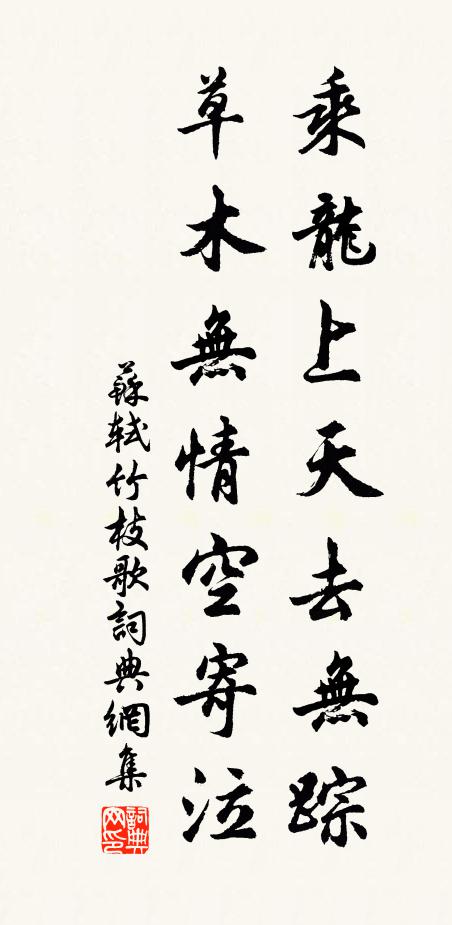 乘龍上天去無踪
草木無情空寄泣
蘇軾竹枝歌詞典網集
詞典網印